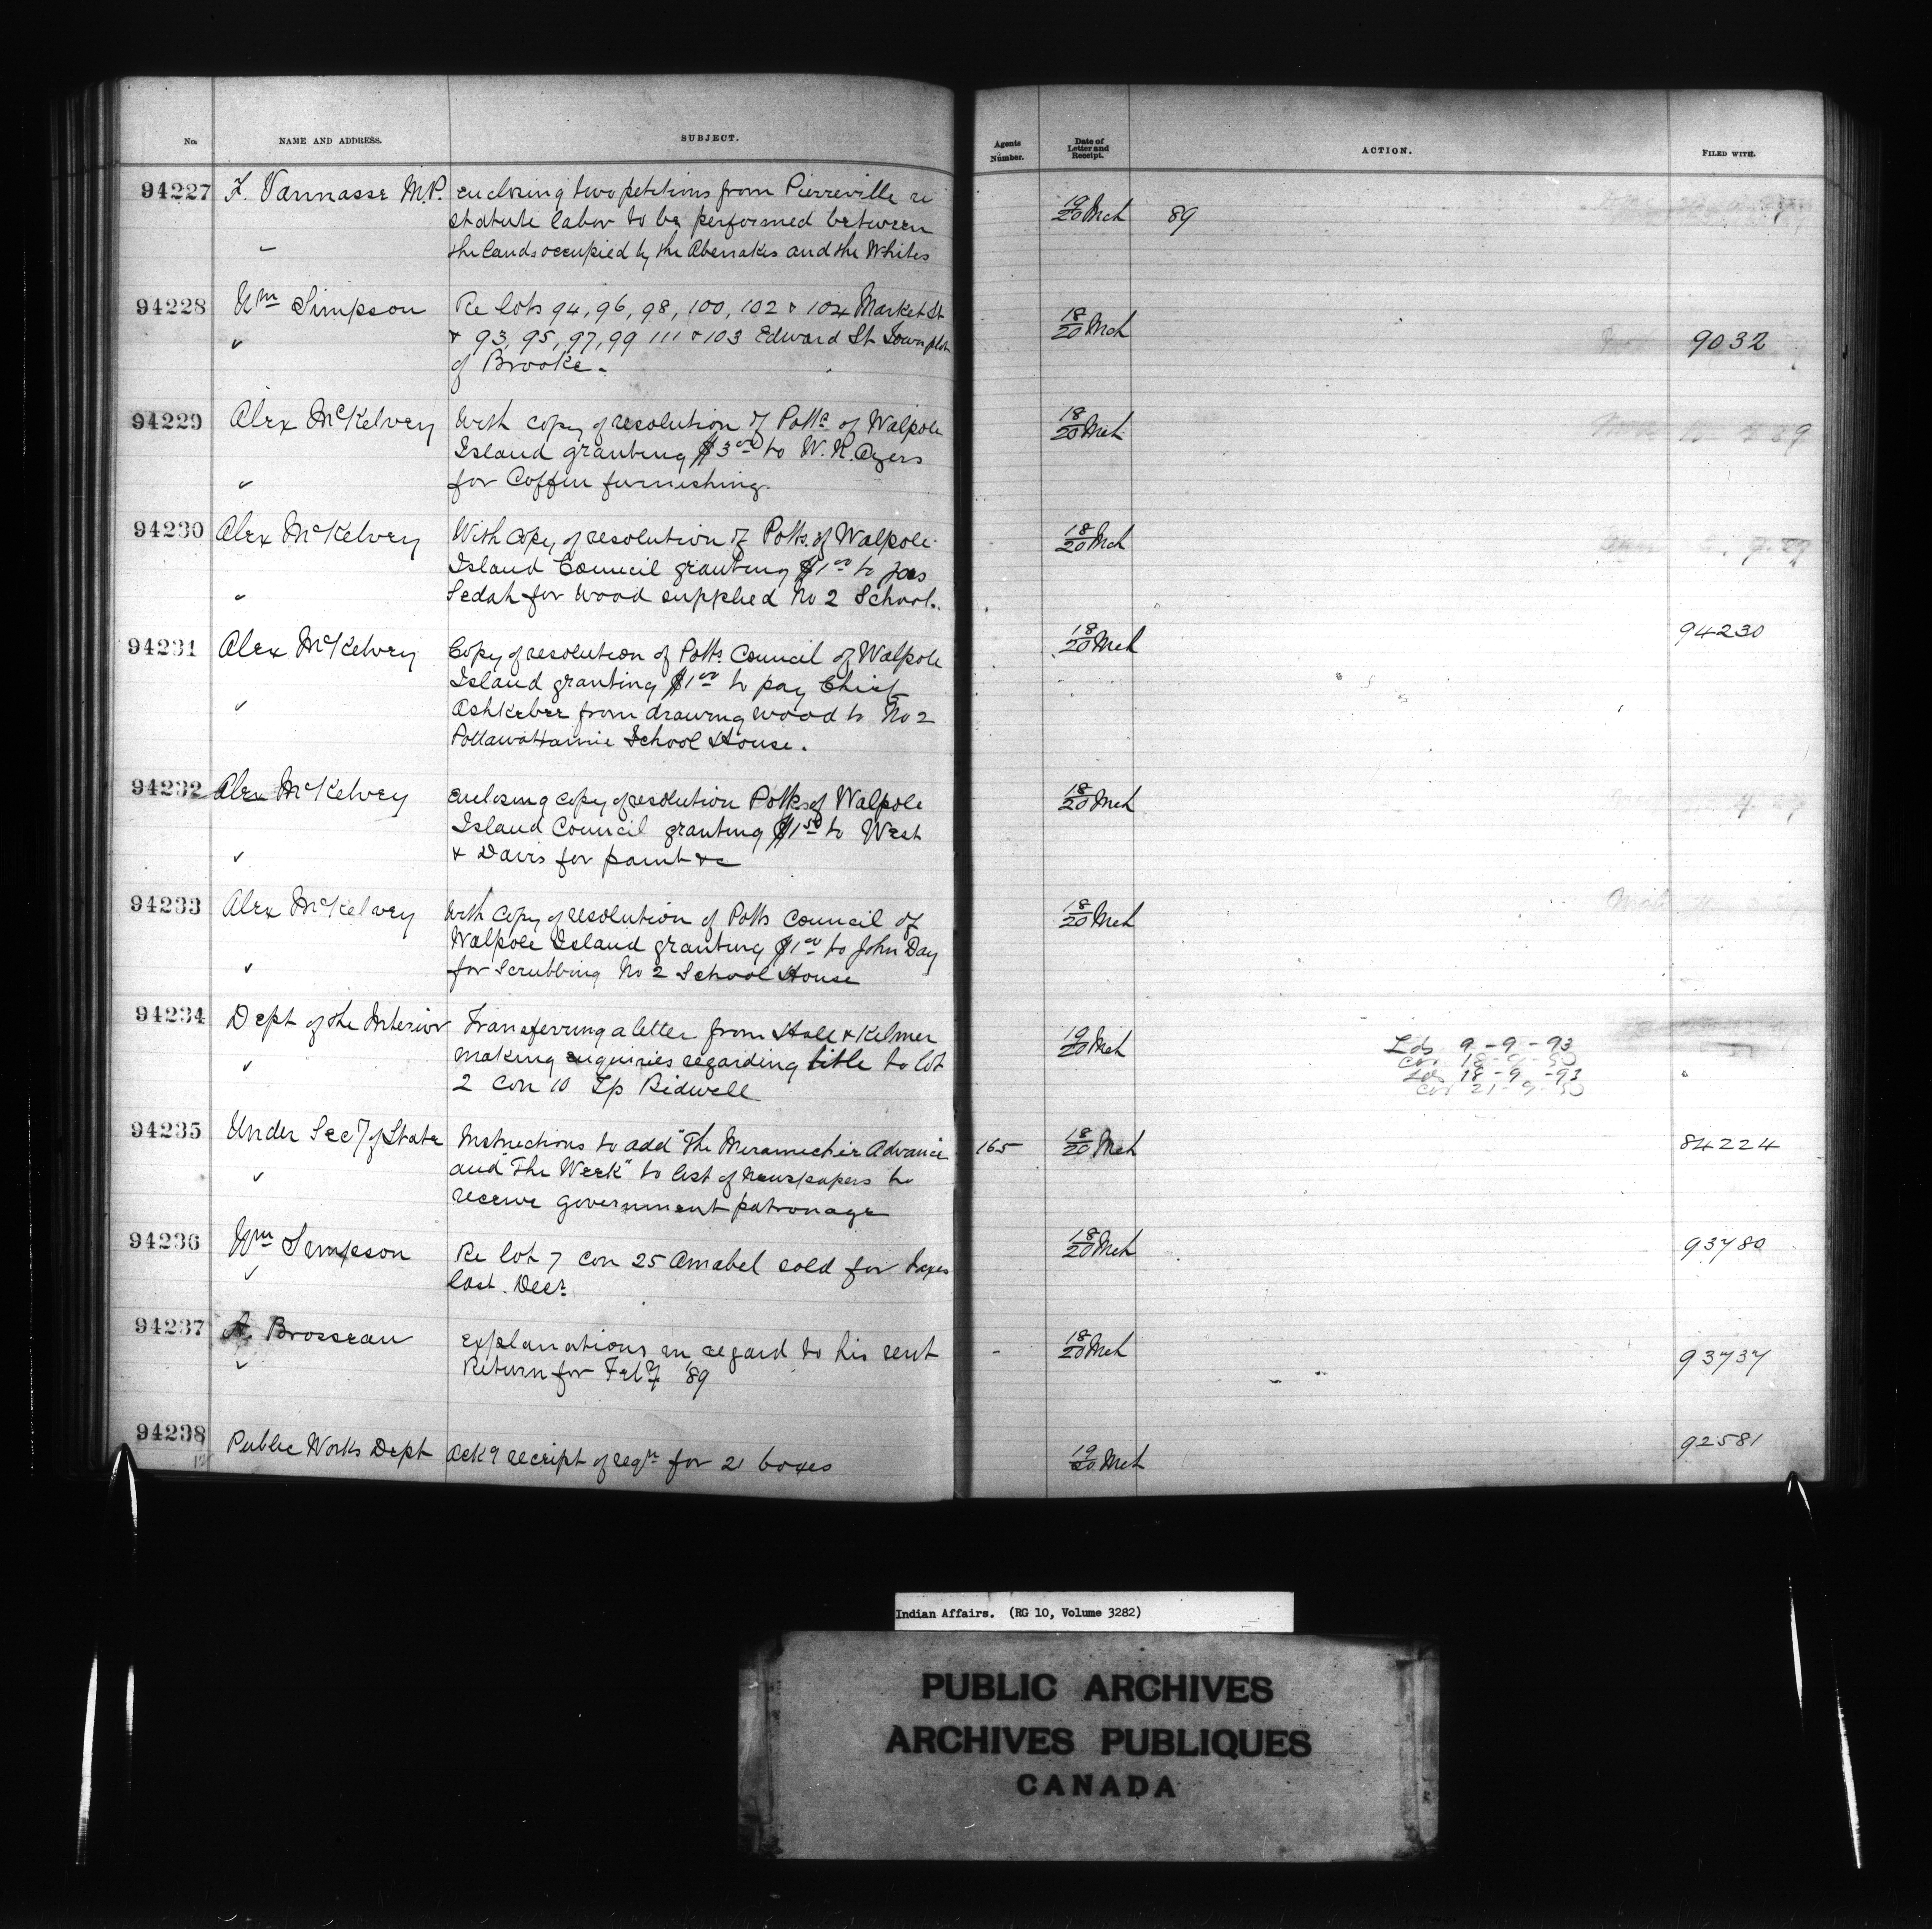 No. NAME AND ADDRESS. SUBJECT. Agents Number. Date of Letter and Receipt. ACTION. FILED WITH.
94227 F. Vannasse M.P. enclosing two petitions from Pierreville re 19/20 Mch 89
statute labor to be performed between
the lands occupied by the Abenakis and the Whites
94228 Wm Simpson Re lots 94, 96, 98, 100, 102 & 104 Market St 18/20 Mch 9032
& 93, 95, 97, 99 111 & 103 Edward St Town plot
of Brooke.
94229 Alex McKelvey With copy of resolution of Potts. of Walpole 18/20 Mch
Island granting $3.00 to W. R. Ayers
for Coffin furnishing.
94230 Alex McKelvey With copy of resolution of Potts. of Walpole 18/20 Mch
Island Council granting $1.00 to Jos
Sedah for wood supplied No 2 School.
94231 Alex McKelvey Copy of resolution of Potts Council of Walpole 18/20 Mch 94230
Island granting $1.00 to pay Chief
Ashkebee from drawing wood to No 2
Pottawattamie School House.
94232 Alex McKelvey enclosing copy of resolution Potts of Walpole 18/20 Mch
Island Council granting $1.50 to West
& Davis for paint &c
94233 Alex McKelvey With copy of resolution of Potts Council of 18/20 Mch
Walpole Island granting $1.00 to John Day
for scrubbing No 2 School House
94234 Dept of the Interior Transferring a letter from Hall & Kelmer 19/20 Mch Lds 9-9-93
making enquiries regarding title to lot Cor 18-9-90
2 Con 10 Tp Bidwell Lds 18-9-93
Cor 21-9-90
94235 Under Secy of State Instructions to add "The Meramechie Advance 165 18/20 Mch 84224
and "The Week" to list of newspapers to
receive government patronage
94236 Wm Simpson Re lot 7 con 25 Amabel sold for taxes 18/20 Mch 93780
last Decr.
94237 A. Brosseau explanations in regard to his rent 18/20 Mch 93737
Return for Feby '89
94238 Public Works Dept ackg receipt of reqn for 21 boxes 19/20 Mch 92581
Indian Affairs. (RG 10, Volume 3282)
PUBLIC ARCHIVES
ARCHIVES PUBLIQUES
CANADA